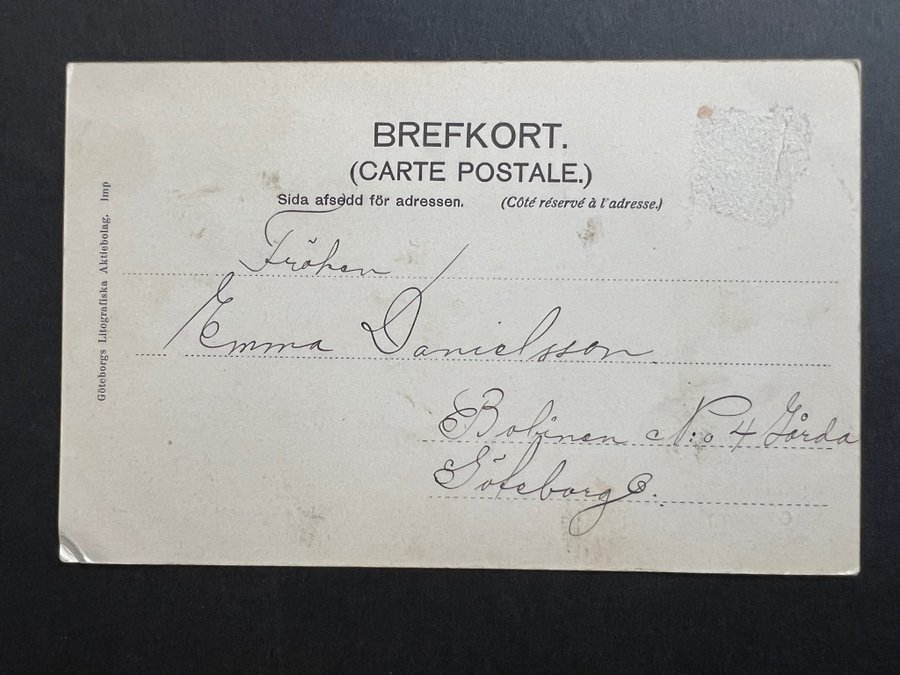 BREFKORT.
(CARTE POSTALE.)
Sida afsedd för adressen. (Côté réservé à l'adresse.)
Göteborgs Litografiska Aktiebolag. Imp
Fröken
Emma Danielsson
Bobinen N:o 4 Gårda
Göteborg.